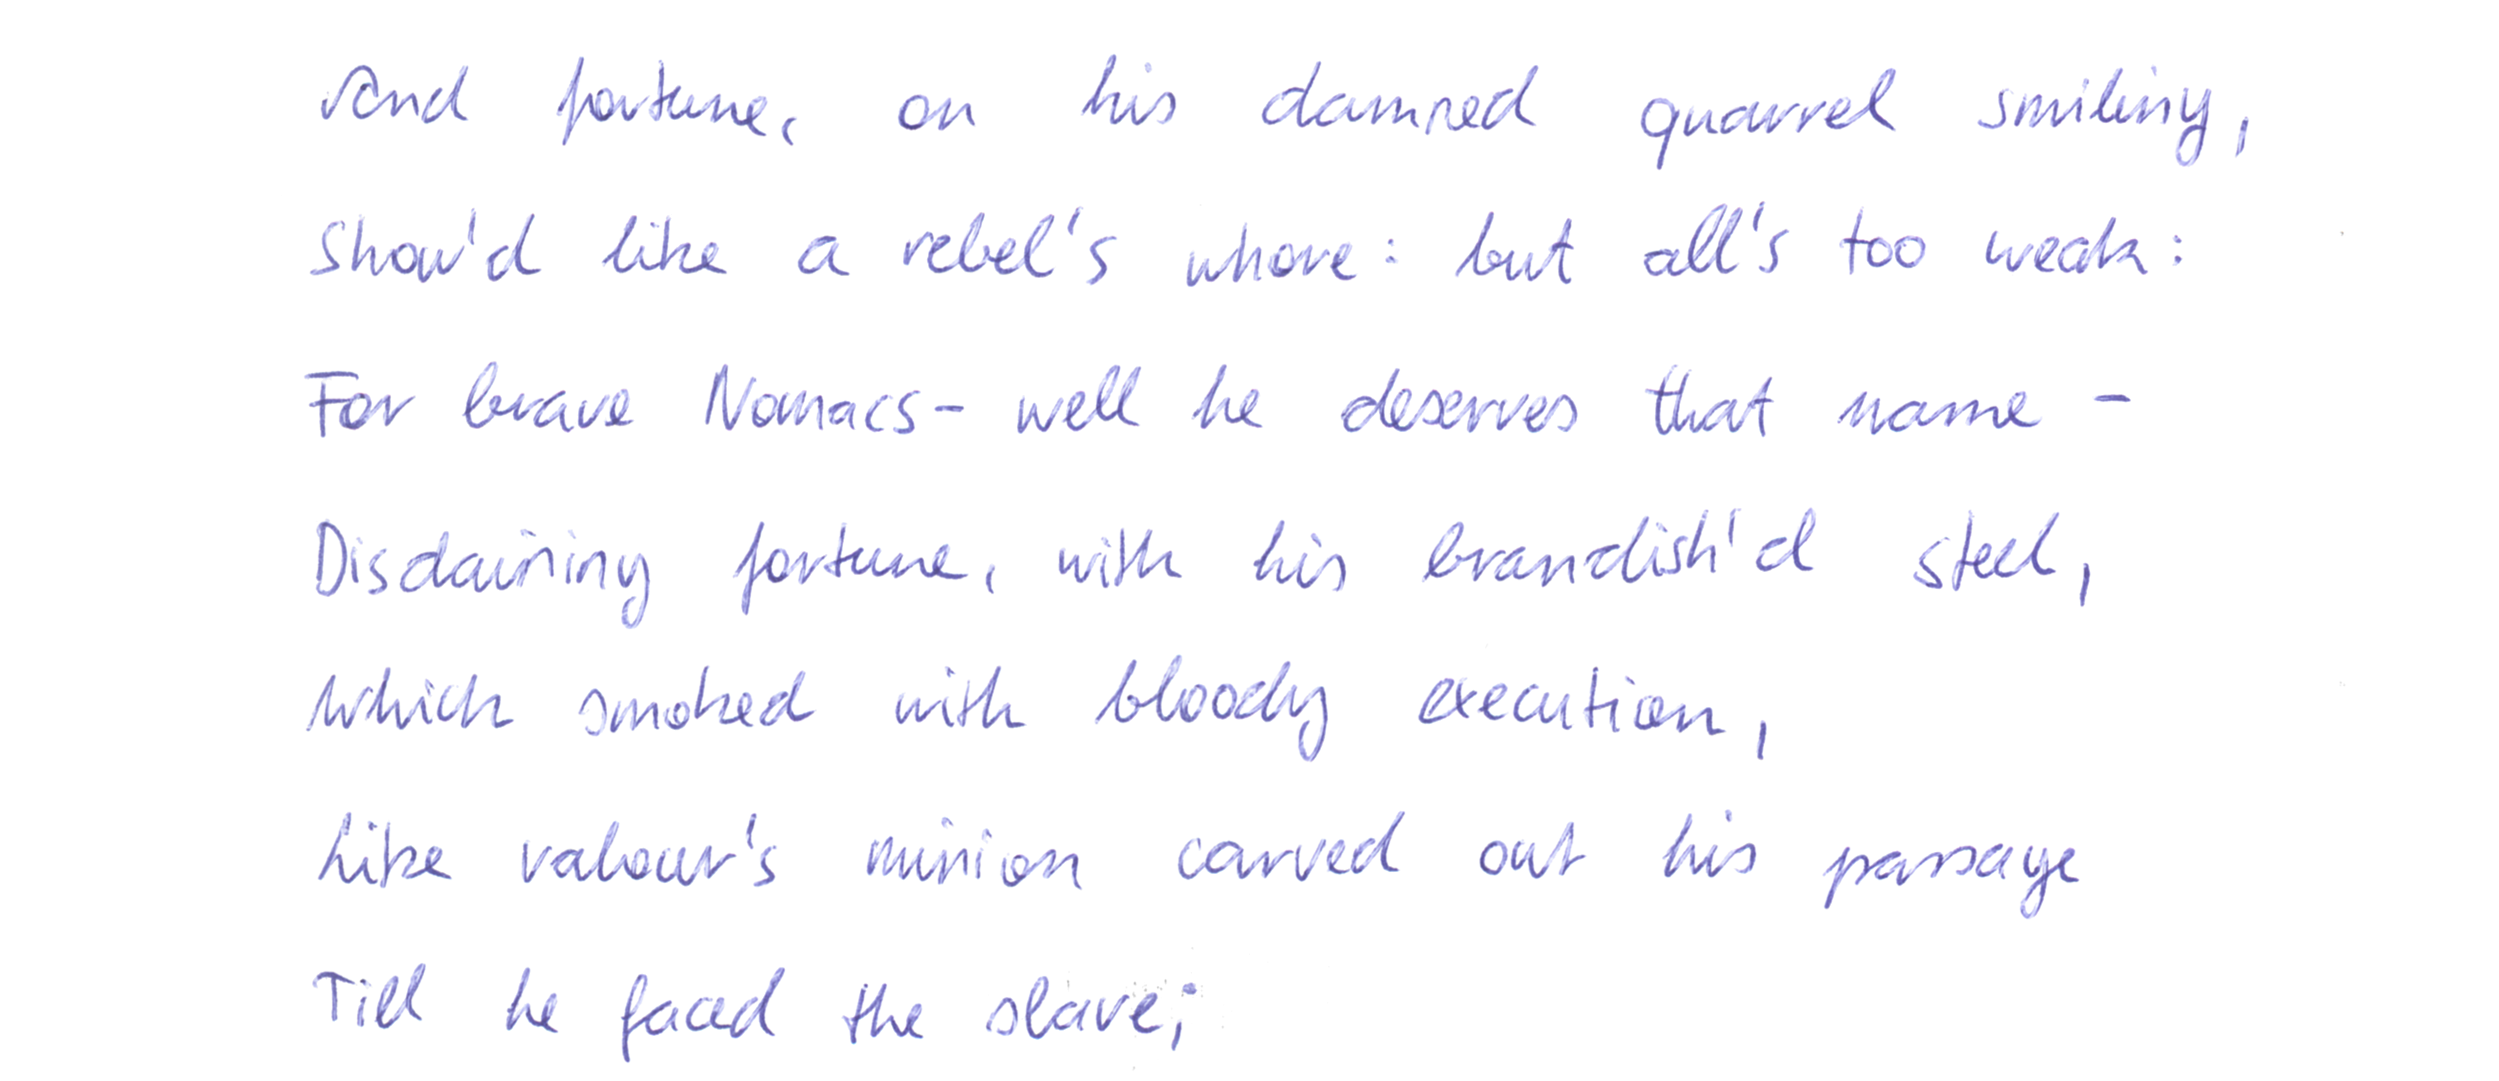 And fortune, on his damned quarrel smiling,
Show'd like a rebel's whore: but all's too weak:
For brave Nomacs- well he deserves that name -
Disdaining fortune, with his brandish'd steel,
which smoked with bloody execution,
Like valour's minion carved out his passage
Till he faced the slave;